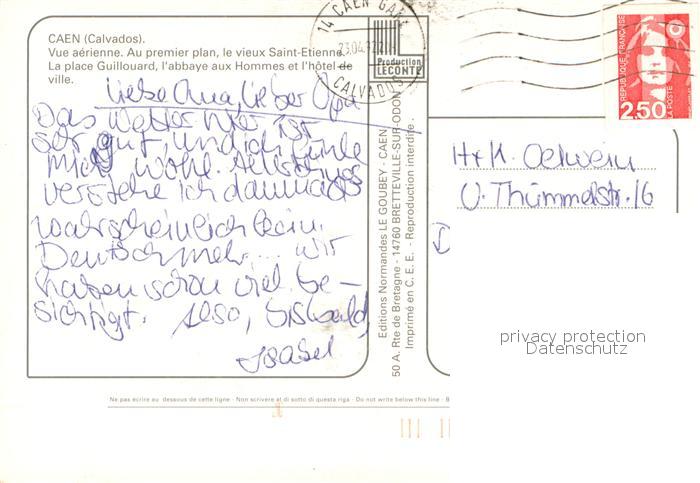 CAEN (Calvados).
Vue aérienne. Au premier plan, le vieux Saint-Etienne.
La place Guillouard, l'abbaye aux Hommes et l'hôtel de
ville.
Liebe Oma, lieber Opa
Das Wetter hier ist
sehr gut, und ich fühle
mich wohl. Allerdings
verstehe ich danach
wahrscheinlich kein
Deutsch mehr.... Wir
haben schon viel be-
sichtigt. Also, bis bald,
Isabel
Editions Normandes LE GOUBEY - CAEN
50 A. Rte de Bretagne - 14760 BRETTEVILLE-SUR-ODON
Imprimé en C. E. E. - Reproduction interdite.
Production
LECONTE
14 CAEN GARE
23.04.92
CALVADOS
REPUBLIQUE FRANÇAISE
2,50
LA POSTE
H+H. Oelwein
V. Thümmelstr. 16
D
privacy protection
Datenschutz
Ne pas écrire au dessous de cette ligne - Non scrivere al di sotto di questa riga - Do not write below this line - B